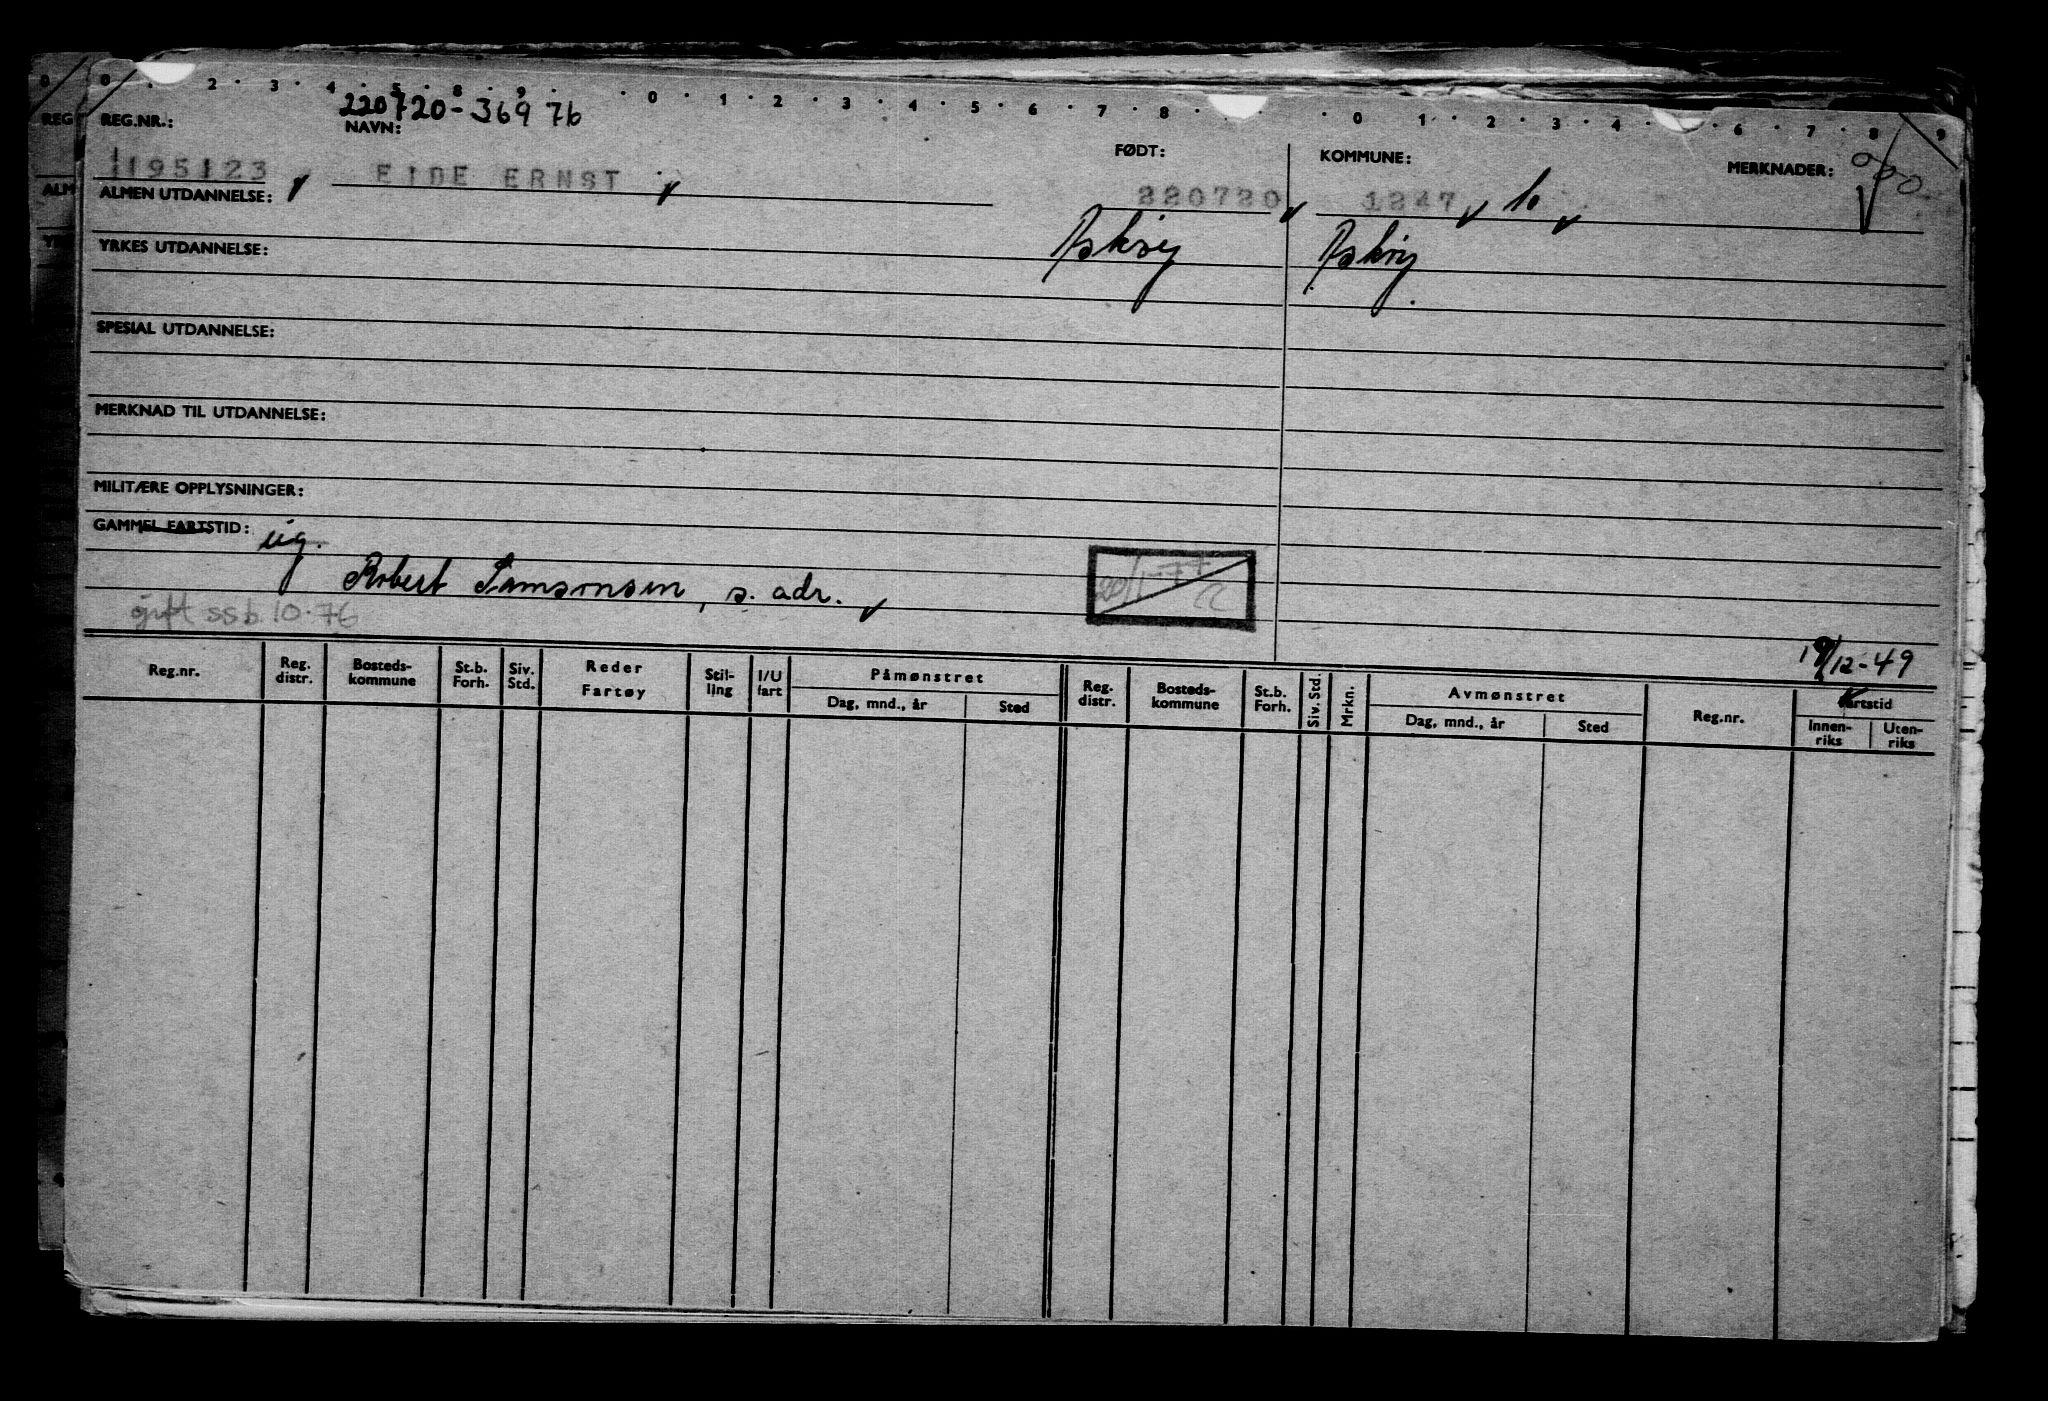 0 2 3 4 5 8 9 0 1 2 3 4 5 6 7 8 0 1 2 3 4 6 7 8 9
220720-36976
REG.NR.: NAVN: FØDT: KOMMUNE: MERKNADER:
1195123 EIDE ERNST 220720 1247
ALMEN UTDANNELSE:
Askøy Askøy
YRKES UTDANNELSE:
SPESIAL UTDANNELSE:
MERKNAD TIL UTDANNELSE:
MILITÆRE OPPLYSNINGER:
GAMMEL FARTSTID:
ug.
Robert Samsonsen, s. adr.
20/1-77
gift ssb 10.76
19/12-49
Reg.nr. Reg. distr. Bosteds-kommune St.b. Forh. Siv. Std. Reder Fartøy Stil-ling I/U fart Påmønstret Dag, mnd., år Sted Reg. distr. Bosteds-kommune St.b. Forh. Siv. Std. Mrkn. Avmønstret Dag, mnd., år Sted Reg.nr. Fartstid Innen-riks Uten-riks